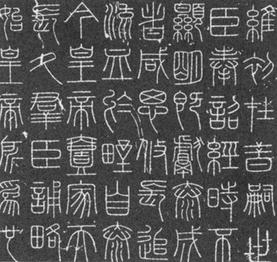 維初在昔嗣世
臣奉詔經時不
顯明既獻泰成
者咸思攸長追
流血於野自泰
今皇帝壹家天
長久群臣誦略
始皇帝所為也